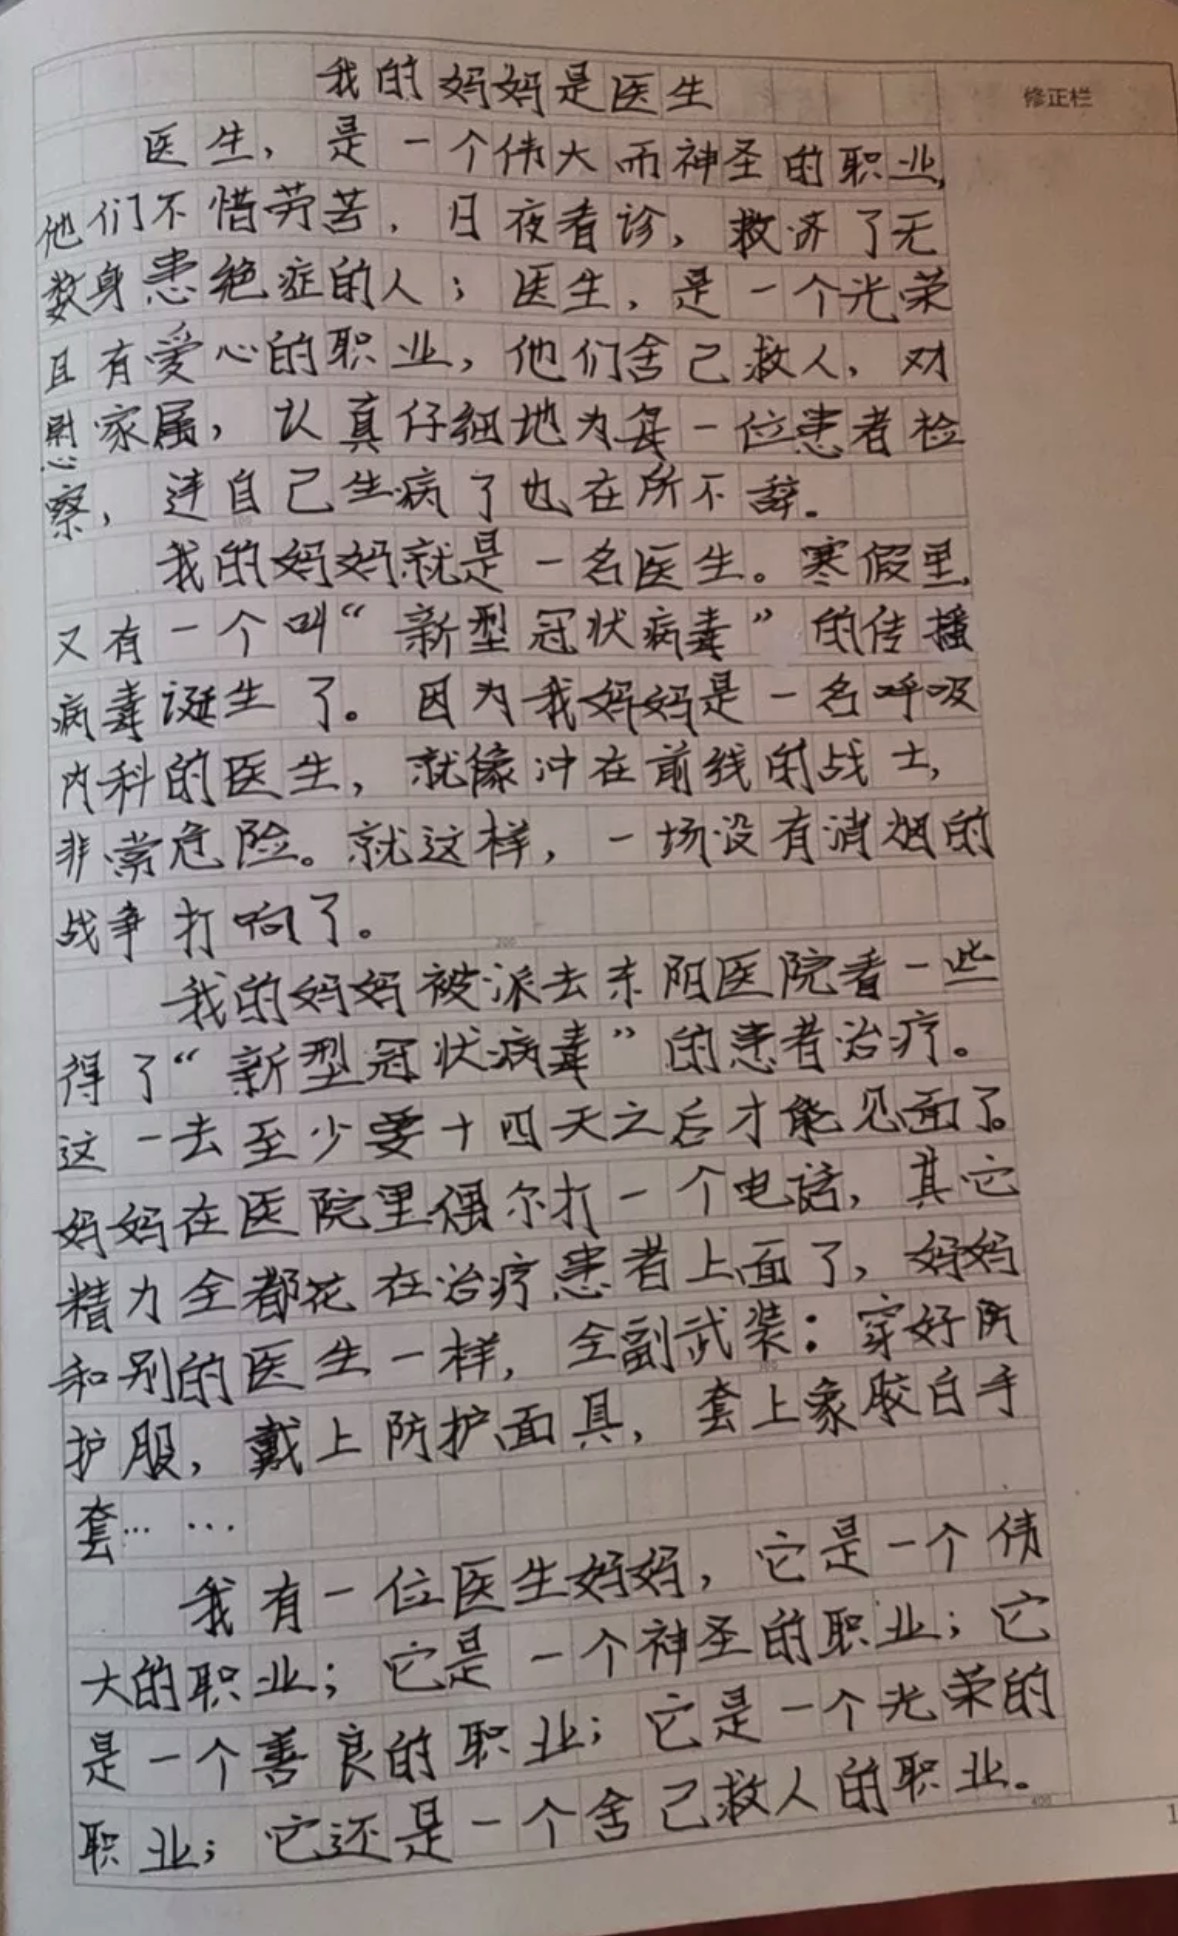 我的妈妈是医生
修正栏
医生，是一个伟大而神圣的职业，
他们不惜劳苦，日夜看诊，救济了无
数身患绝症的人；医生，是一个光荣
且有爱心的职业，他们舍己救人，对
慰家属，认真仔细地为每一位患者检
察，连自己生病了也在所不辞。
我的妈妈就是一名医生。寒假里，
又有一个叫“新型冠状病毒”的传播
病毒诞生了。因为我妈妈是一名呼吸
内科的医生，就像冲在前线的战士，
非常危险。就这样，一场没有消烟的
战争打响了。
200
我的妈妈被派去东阳医院看一些
得了“新型冠状病毒”的患者治疗。
这一去至少要十四天之后才能见面了。
妈妈在医院里偶尔打一个电话，其它
精力全都花在治疗患者上面了，妈妈
和别的医生一样，全副武装：穿好防
300
护服，戴上防护面具，套上象胶白手
套……
我有一位医生妈妈，它是一个伟
大的职业；它是一个神圣的职业；它
是一个善良的职业；它是一个光荣的
职业；它还是一个舍己救人的职业。
400
1